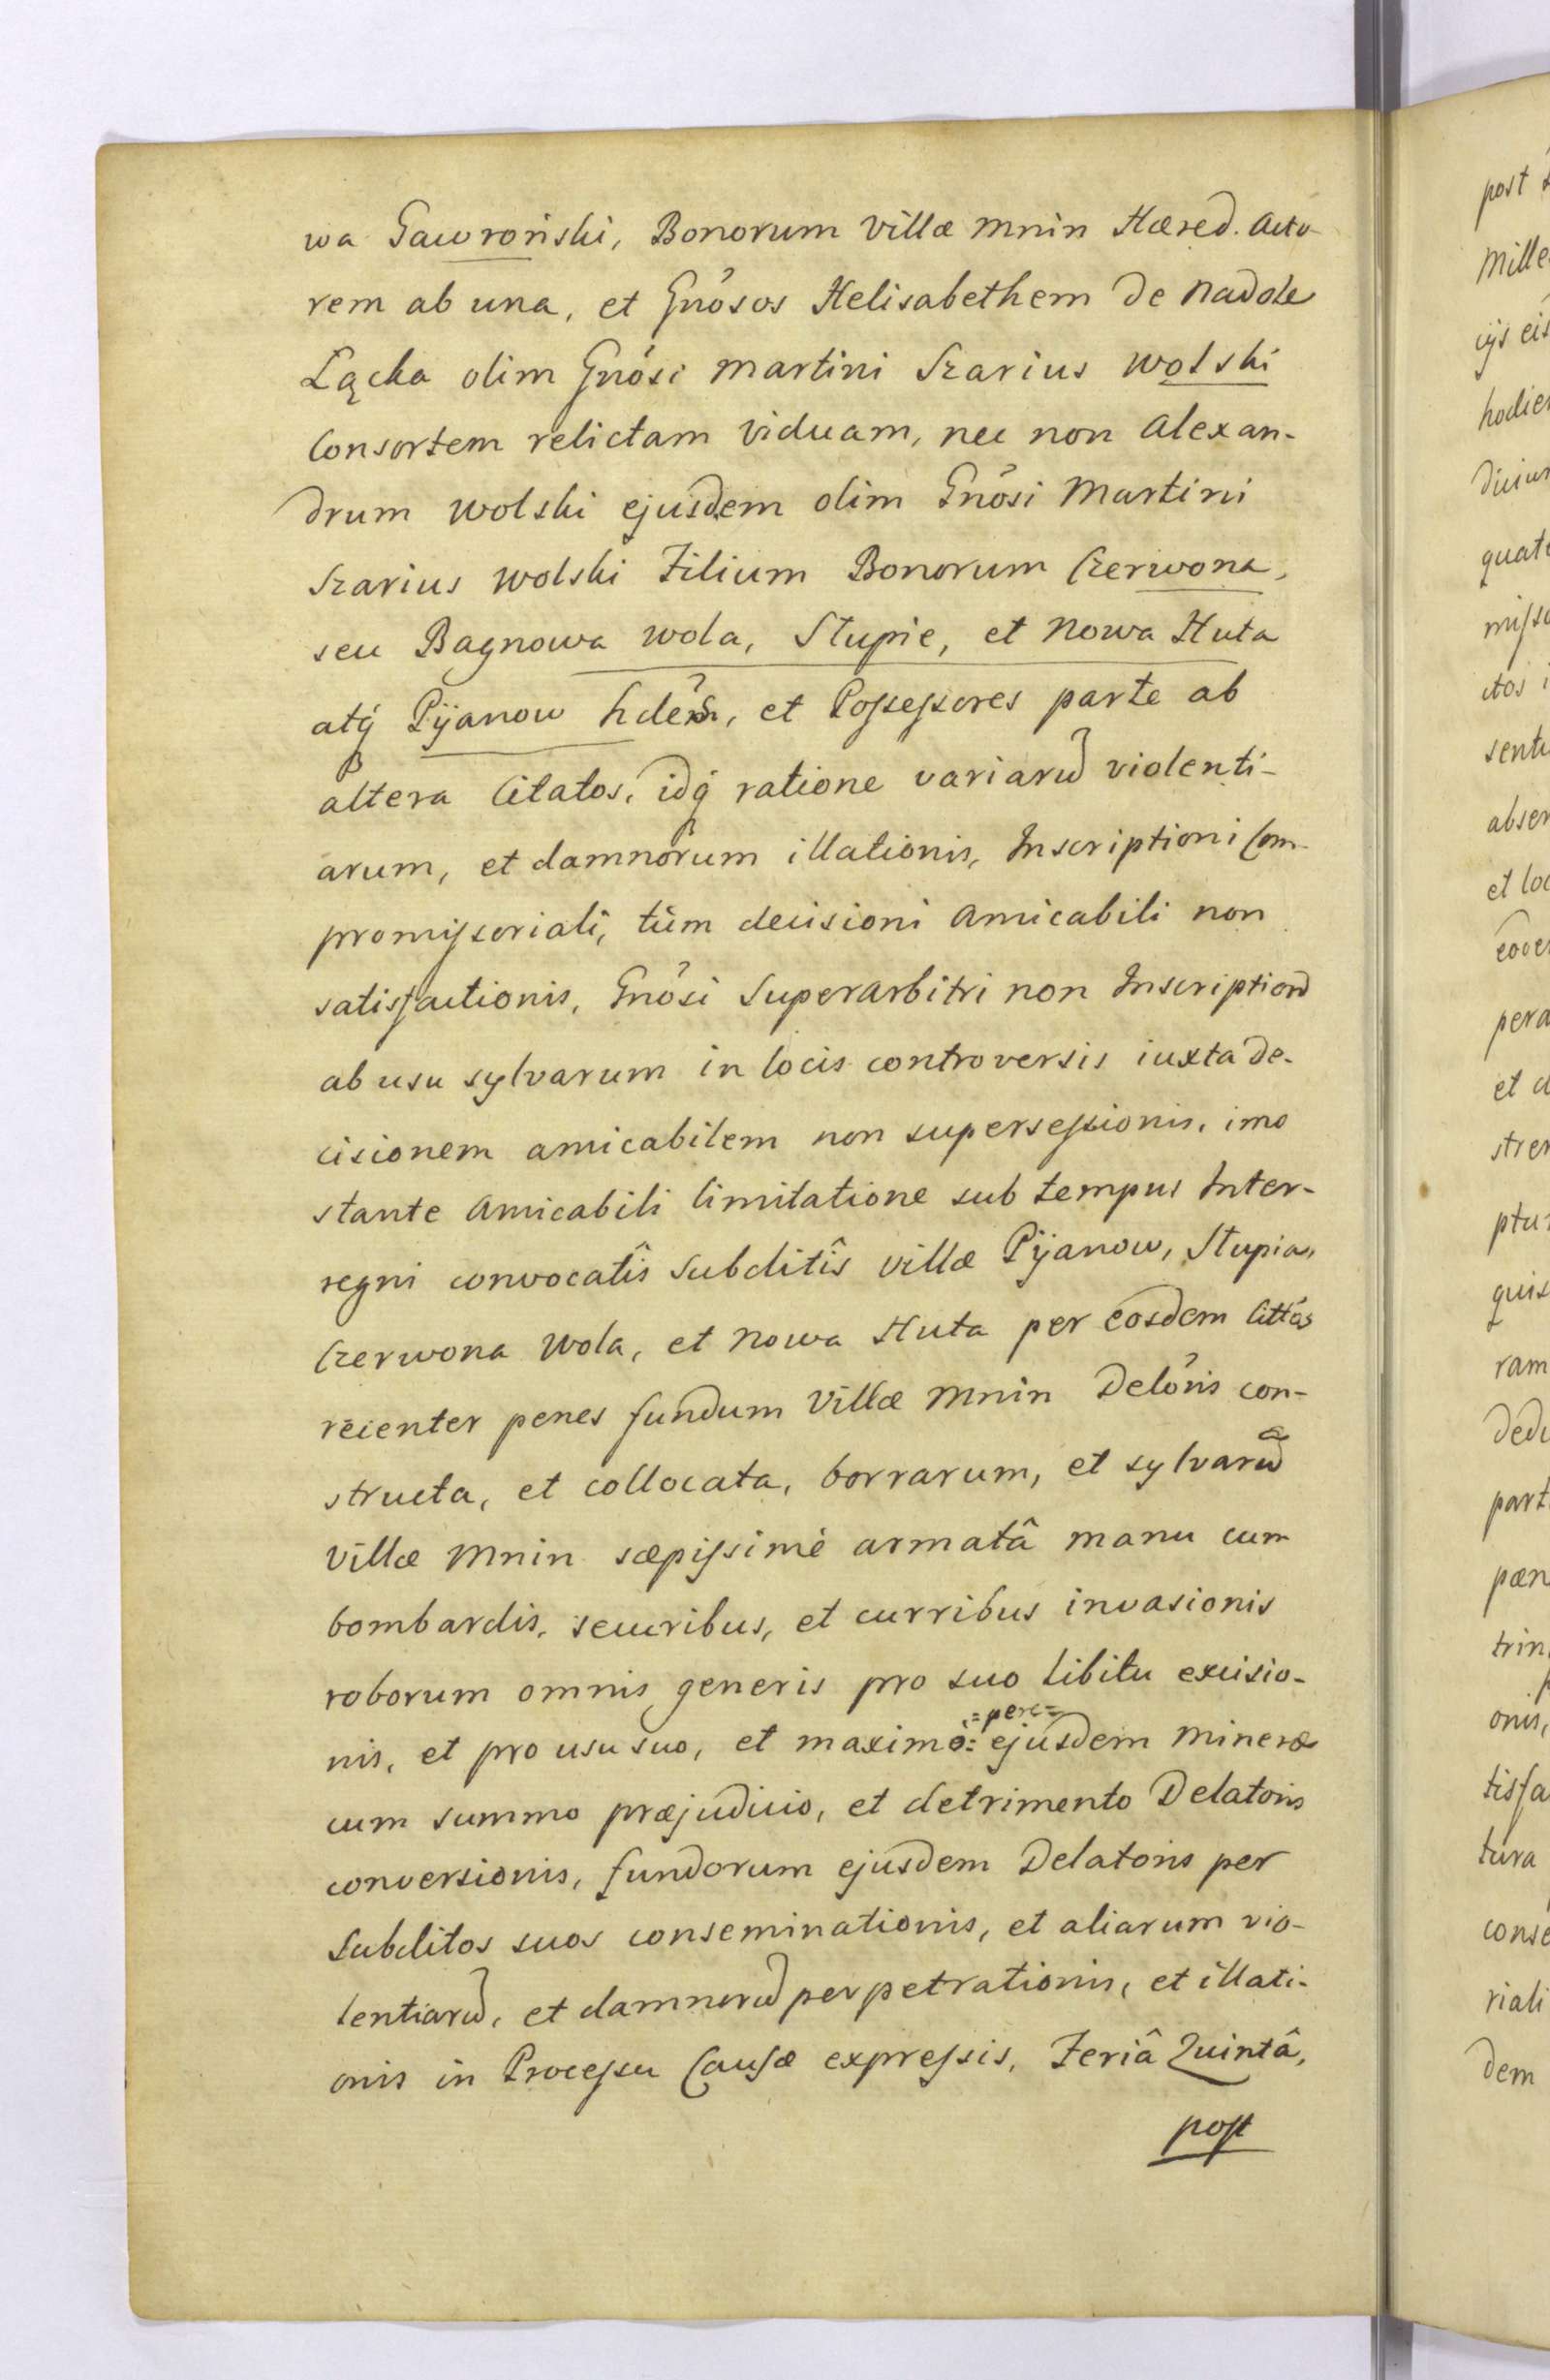 wa Gawroński, Bonorum Villæ Mnin Hæred. Acto-
rem ab una, et Gnôsos Helisabethem de Nadole
Łącka olim Gnôsi Martini Szarius Wolski
Consortem relictam Viduam, nec non Alexan-
drum Wolski ejusdem olim Gnôsi Martini
Szarius Wolski Filium Bonorum Czerwona,
seu Bagnowa Wola, Stupie, et Nowa Huta
atq́ Pijanow hdes, et Possessores parte ab
altera Citatos, idq́ ratione variarũ violenti-
arum, et damnorum illationis, Inscriptioni Com-
promissoriali, tùm decisioni amicabili non
satisfactionis, Gnôsi Superarbitri non Inscriptionẽ
ab usu sylvarum in locis controversis iuxta de-
cisionem amicabilem non supersessionis, imo
stante amicabili limitatione sub tempus Inter-
regni convocatîs Subditîs villæ Pijanow, Stupia,
Czerwona Wola, et Nowa Huta per eosdem Cittôs
recienter penes fundum Villæ Mnin Delôris con-
structa, et collocata, borrarum, et sylvarũ
Villæ Mnin sæpissimè armatâ manu cum
bombardis, securibus, et curribus invasionis
roborum omnis generis pro suo libitu excisio-
nis, et pro usu suo, et maximè =pere= ejusdem Mineræ
cum summo præjudicio, et detrimento Delatoris
conversionis, fundorum ejusdem Delatoris per
Subditos suos conseminationis, et aliarum vio-
lentiarũ, et damnorũ perpetrationis, et illati-
onis in Processu Causæ expressis, Feriâ Quintâ,
post
post
Mille
ijs eis
hodier
quat
sent
absen
et loc
pera
et
ptu
quis
ram
dedu
part
pœn
trin
onis,
tisfa
tura
conse
riali
dem